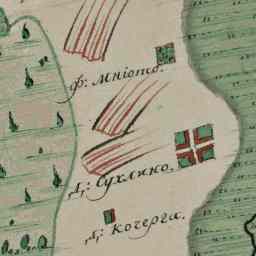 ф: Мніото.
д: Сухлино.
д: кочерга.